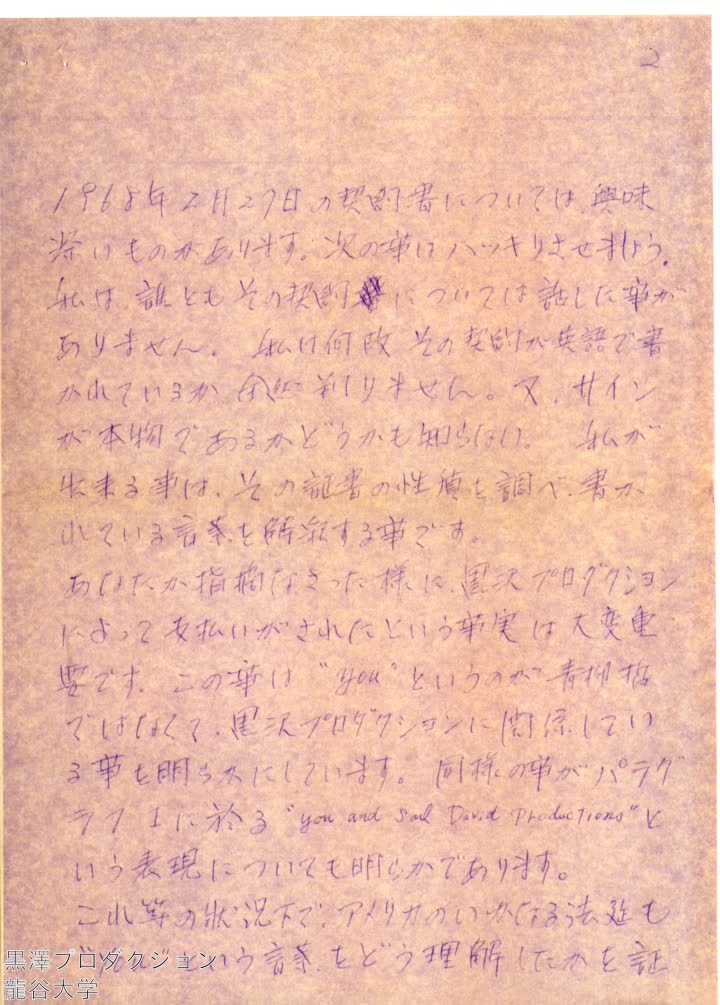 2
1968年2月27日の契約書については、興味
深いものがあります。次の事はハッキリさせましょう。
私は、誰ともその契約については話した事が
ありません。 私は何故その契約が英語で書
かれているか全然判りません。又、サイン
が本物であるかどうかも知らない。 私が
出来る事は、その証書の性質を調べ、書か
れている言葉を解釈する事です。
あなたが指摘なさった様に、黒沢プロダクション
によって支払いがされたという事実は大変重
要です。この事は "you" というのが青柳哲
ではなくて、黒沢プロダクションに関係してい
る事を明らかにしています。同様の事がパラグ
ラフ1に於る "you and Saul David Productions" と
いう表現についても明らかであります。
これ等の状況下で、アメリカのいかなる法廷も
"you" という言葉をどう理解したかを証
黒澤プロダクション
龍谷大学